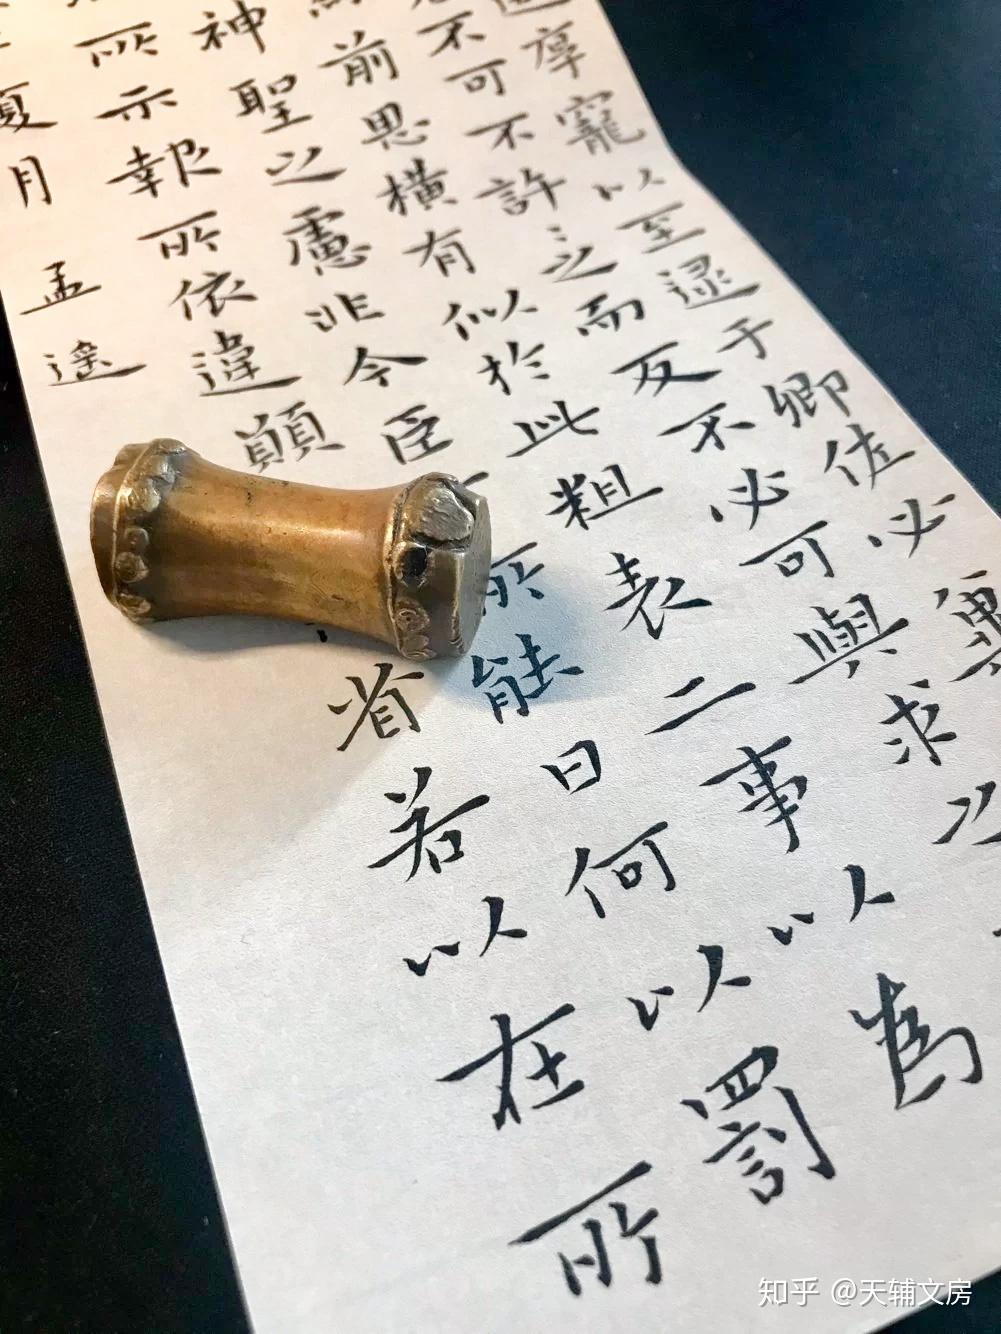 厚寵以至逮于卿佐必冀
不可不許〻之而反不必可與求之
前思橫有似於此粗表二事以為
神聖之慮非今臣所能曰何以罰
以示報所依違願省若以在所
夏月 孟遥
知乎 @天辅文房